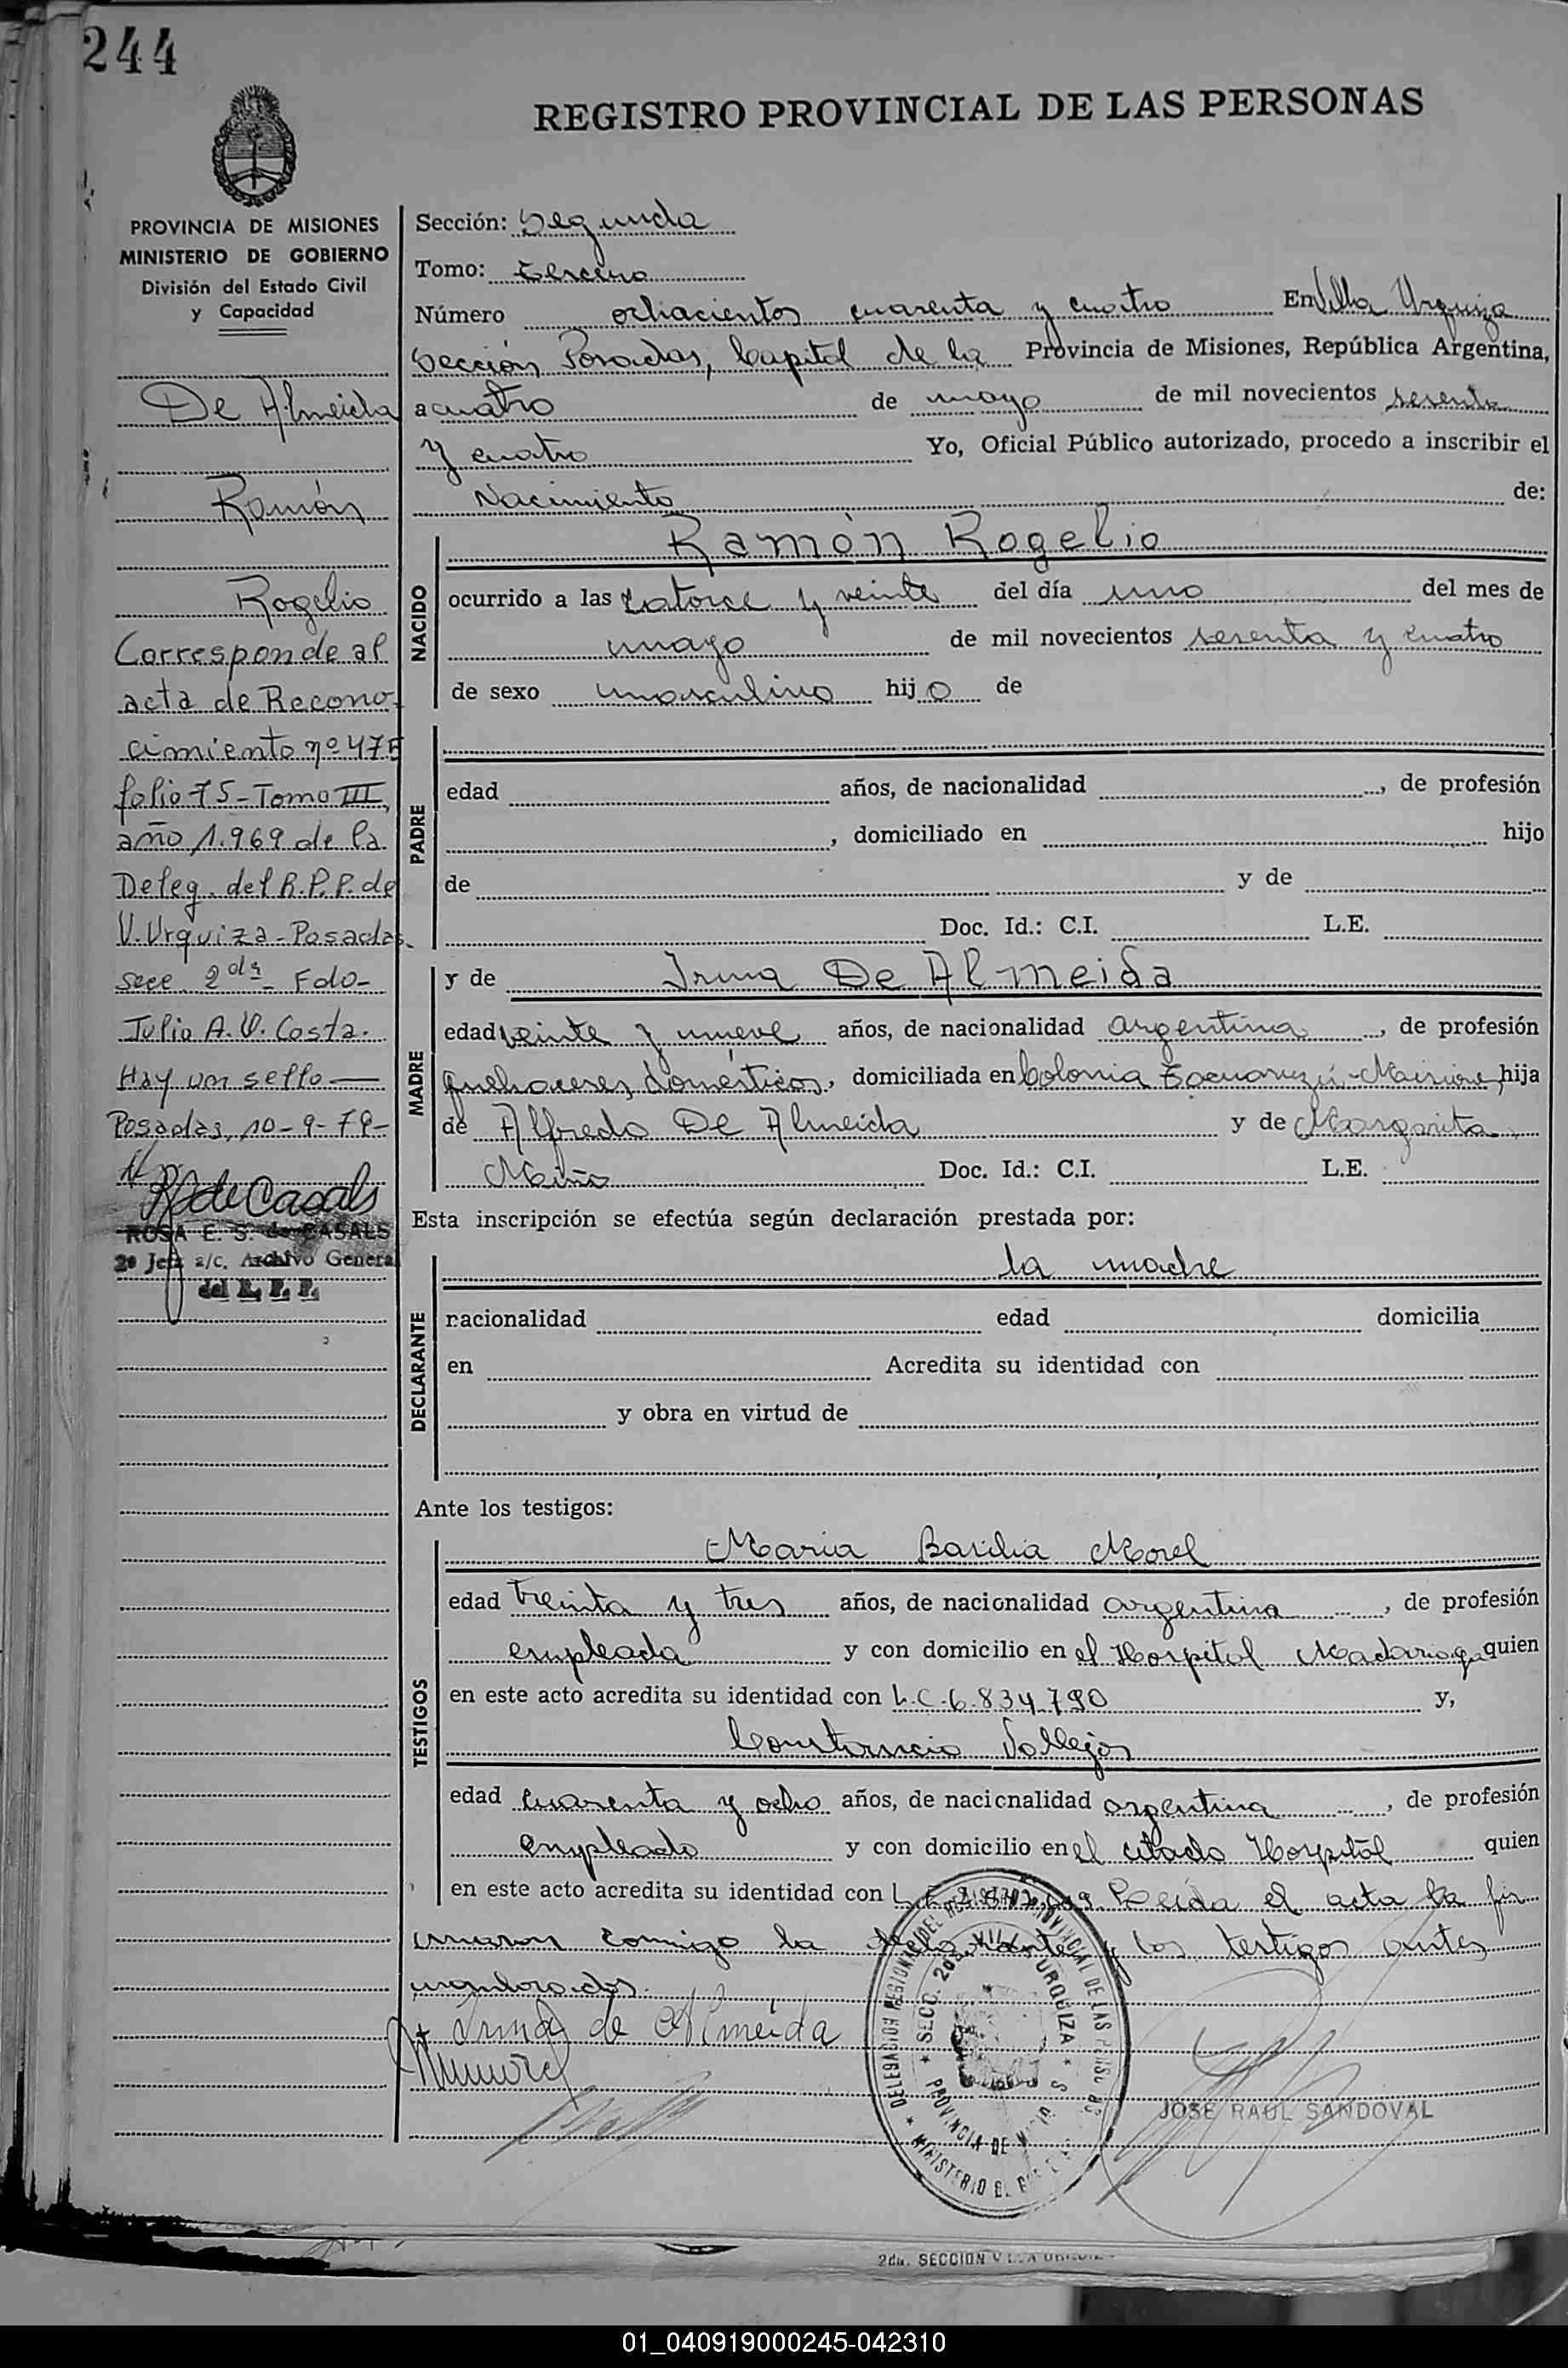 244
REGISTRO PROVINCIAL DE LAS PERSONAS
PROVINCIA DE MISIONES
MINISTERIO DE GOBIERNO
División del Estado Civil
y Capacidad
De Almeida
Ramón
Rogelio
Corresponde al
acta de Recono-
cimiento nº 475
folio 75-Tomo III,
año 1.969 de la
Deleg. del R.P.P. de
V. Urquiza-Posadas-
secc. 2da- Fdo-
Julio A. V. Costa.
Hay un sello—
Posadas, 10-9-79-
R de Casals
ROSA E. S. de CASALS
2º Jefe a/c. Archivo General
del R. P. P.
Sección: Segunda
Tomo: tercero
Número ochocientos cuarenta y cuatro En Villa Urquiza
Sección Posadas, Capital de la Provincia de Misiones, República Argentina,
a cuatro de mayo de mil novecientos sesenta
y cuatro Yo, Oficial Público autorizado, procedo a inscribir el
Nacimiento de:
NACIDO
Ramón Rogelio
ocurrido a las catorce y veinte del día uno del mes de
mayo de mil novecientos sesenta y cuatro
de sexo masculino hijo de
PADRE
edad años, de nacionalidad , de profesión
, domiciliado en hijo
de y de
Doc. Id.: C.I. L.E.
MADRE
y de Irma De Almeida
edad veinte y nueve años, de nacionalidad argentina, de profesión
quehaceres domésticos, domiciliada en Colonia Misiones, hija
de Alfredo De Almeida y de Margarita
Miño Doc. Id.: C.I. L.E.
Esta inscripción se efectúa según declaración prestada por:
DECLARANTE
la madre
nacionalidad edad domicilia
en Acredita su identidad con
y obra en virtud de
Ante los testigos:
TESTIGOS
Maria Basilia Morel
edad treinta y tres años, de nacionalidad argentina, de profesión
empleada y con domicilio en el Hospital Madariaga quien
en este acto acredita su identidad con L.C. 6.834.790 y,
Constancio Vallejos
edad cuarenta y ocho años, de nacionalidad argentina, de profesión
empleado y con domicilio en el citado Hospital quien
en este acto acredita su identidad con Leida el acta la fir
maron conmigo la declarante y los testigos antes
nombrados.
Irma de Almeida
DELEGACION REGIONAL DEL REGISTRO PROVINCIAL DE LAS PERSONAS
SECC. 2da. VILLA URQUIZA
PROVINCIA DE
MINISTERIO
JOSE RAUL SANDOVAL
2da. SECCION
01_040919000245-042310